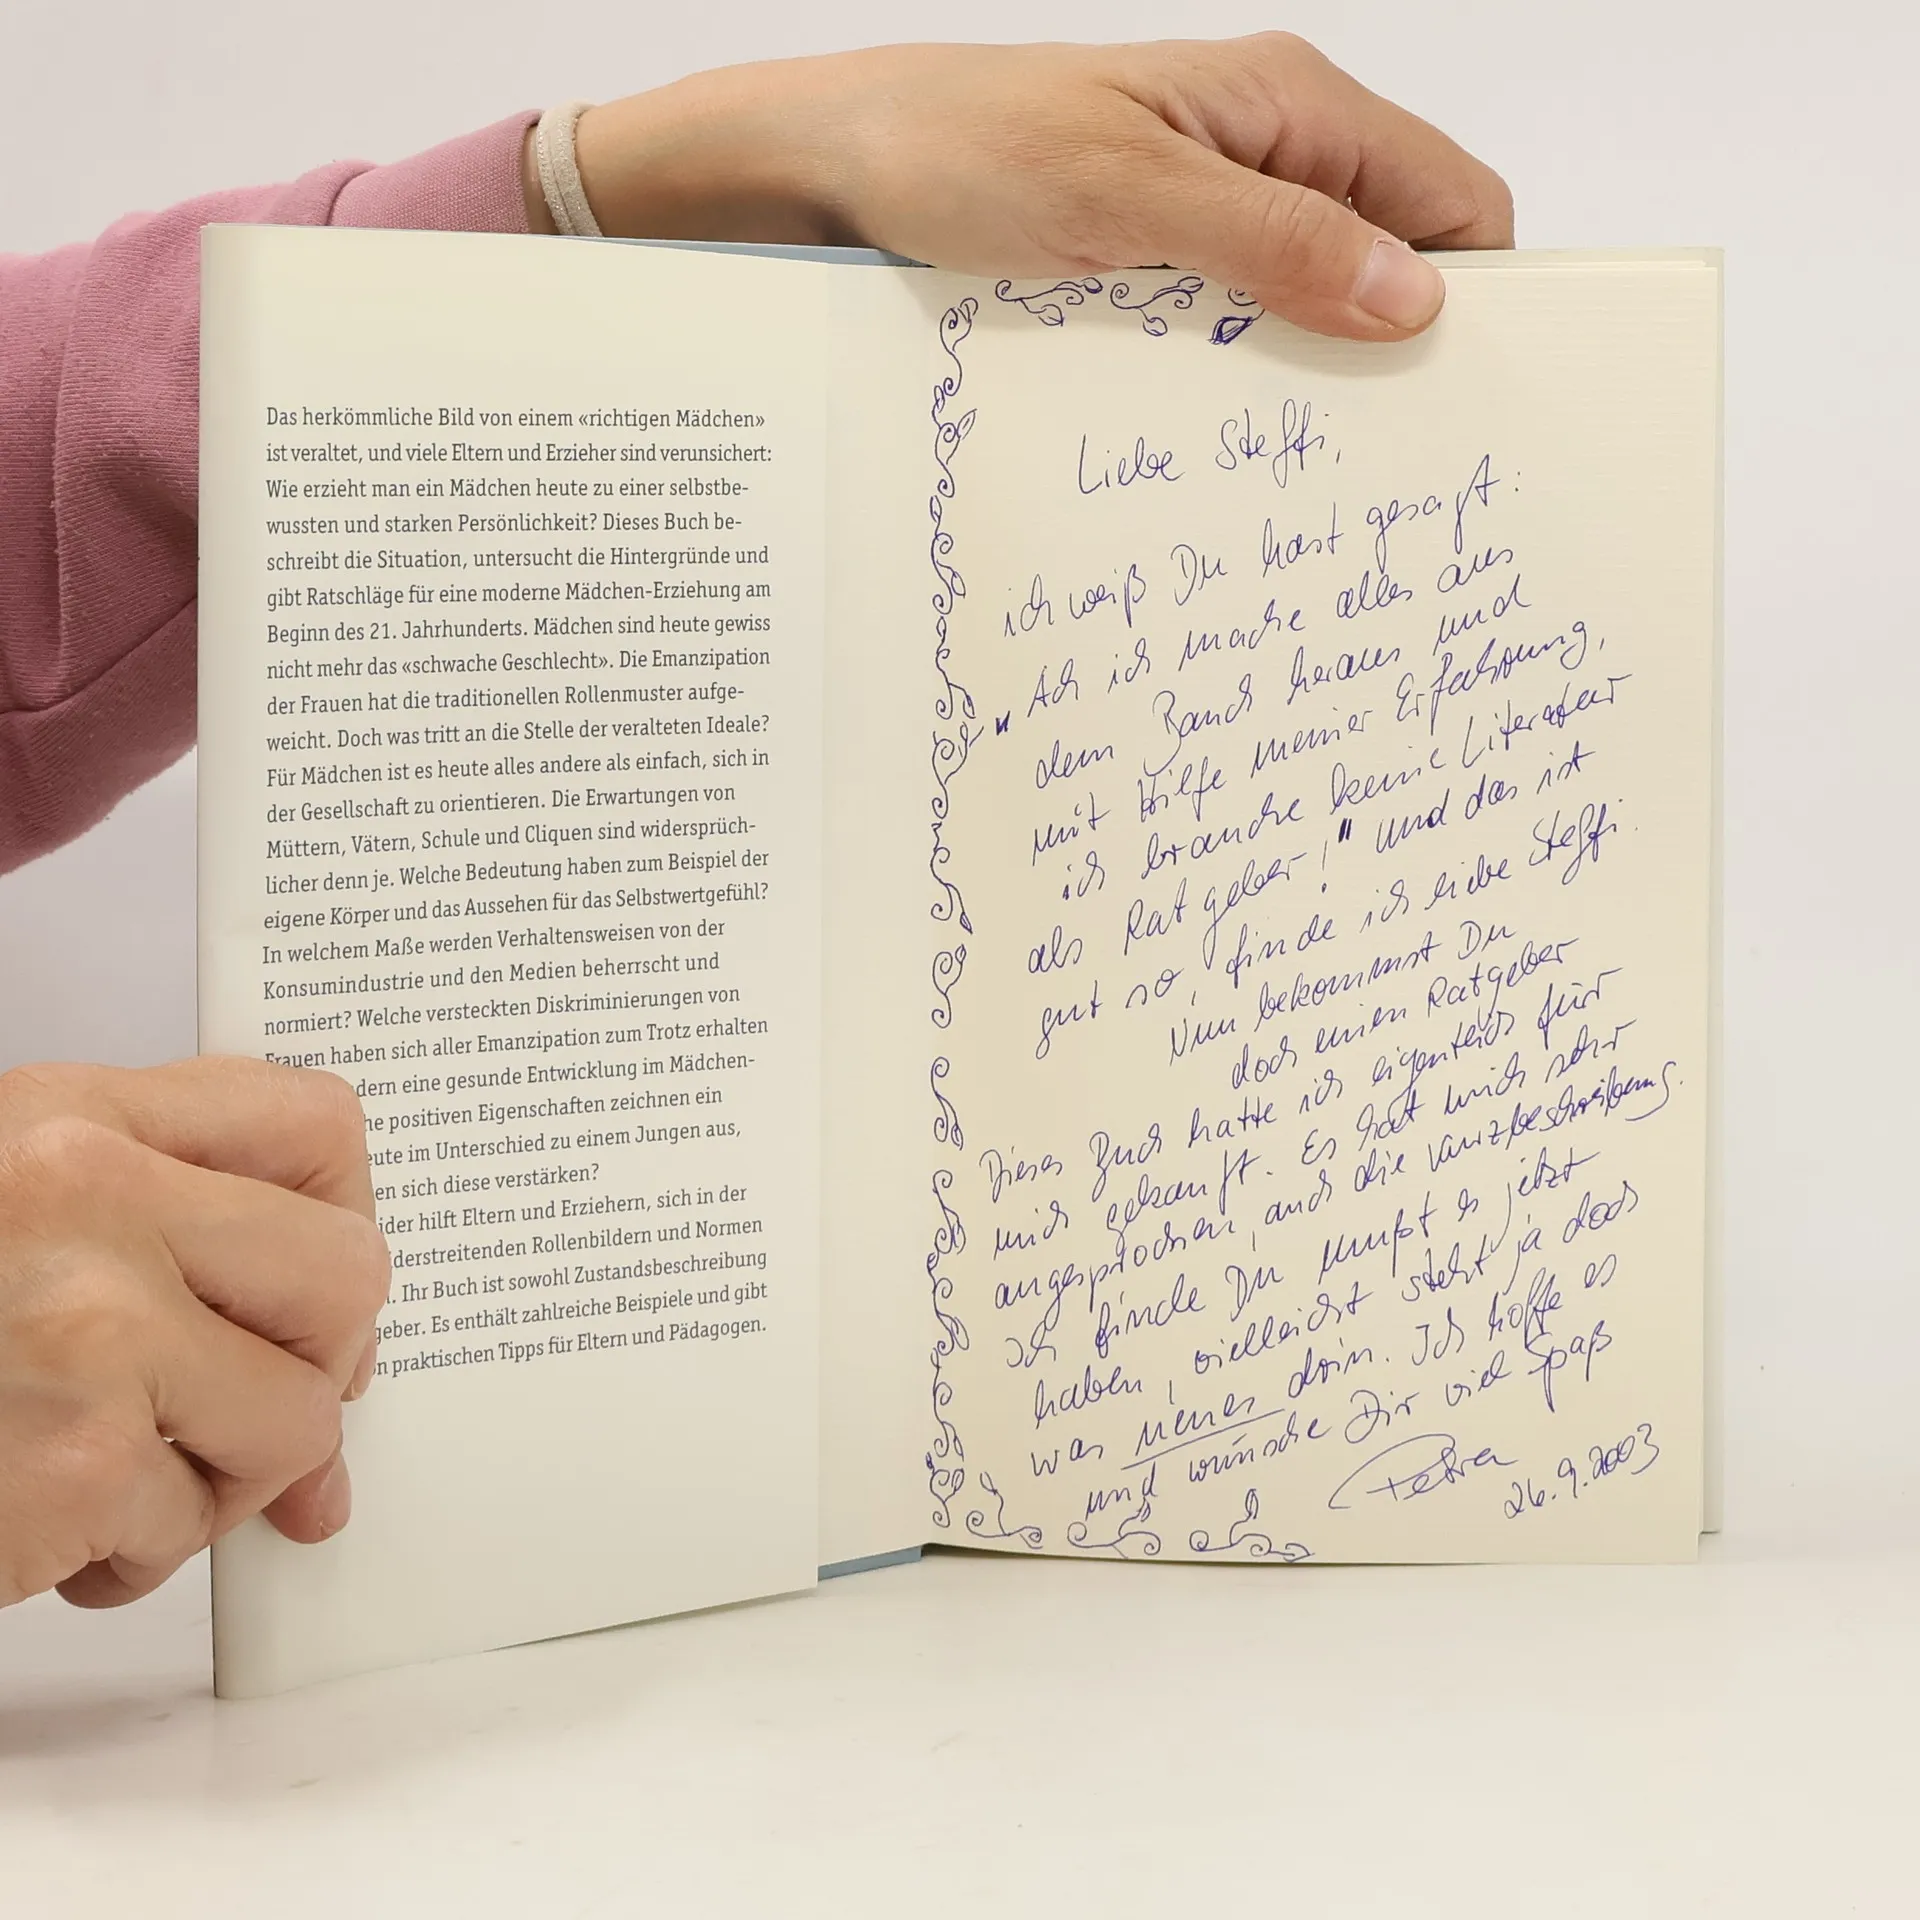 Das herkömmliche Bild von einem «richtigen Mädchen»
ist veraltet, und viele Eltern und Erzieher sind verunsichert:
Wie erzieht man ein Mädchen heute zu einer selbstbe-
wussten und starken Persönlichkeit? Dieses Buch be-
schreibt die Situation, untersucht die Hintergründe und
gibt Ratschläge für eine moderne Mädchen-Erziehung am
Beginn des 21. Jahrhunderts. Mädchen sind heute gewiss
nicht mehr das «schwache Geschlecht». Die Emanzipation
der Frauen hat die traditionellen Rollenmuster aufge-
weicht. Doch was tritt an die Stelle der veralteten Ideale?
Für Mädchen ist es heute alles andere als einfach, sich in
der Gesellschaft zu orientieren. Die Erwartungen von
Müttern, Vätern, Schule und Cliquen sind widersprüch-
licher denn je. Welche Bedeutung haben zum Beispiel der
eigene Körper und das Aussehen für das Selbstwertgefühl?
In welchem Maße werden Verhaltensweisen von der
Konsumindustrie und den Medien beherrscht und
normiert? Welche versteckten Diskriminierungen von
Frauen haben sich aller Emanzipation zum Trotz erhalten
dern eine gesunde Entwicklung im Mädchen-
he positiven Eigenschaften zeichnen ein
eute im Unterschied zu einem Jungen aus,
en sich diese verstärken?
ider hilft Eltern und Erziehern, sich in der
derstreitenden Rollenbildern und Normen
. Ihr Buch ist sowohl Zustandsbeschreibung
geber. Es enthält zahlreiche Beispiele und gibt
n praktischen Tipps für Eltern und Pädagogen.
Liebe Steffi,
ich weiß Du hast gesagt:
"Ach ich mache alles aus
dem Bauch heraus und
mit Hilfe meiner Erfahrung,
ich brauche keine Literatur
als Ratgeber!" und das ist
gut so, finde ich liebe Steffi.
Nun bekommst Du
doch einen Ratgeber
Dieses Buch hatte ich eigentlich für
mich gekauft. Es hat mich sehr
angesprochen, auch die Kurzbeschreibung.
Ich finde Du mußt es jetzt
haben, vielleicht steht ja doch
was neues drin. Ich hoffe es
und wünsche Dir viel Spaß
Petra
26.9.2003